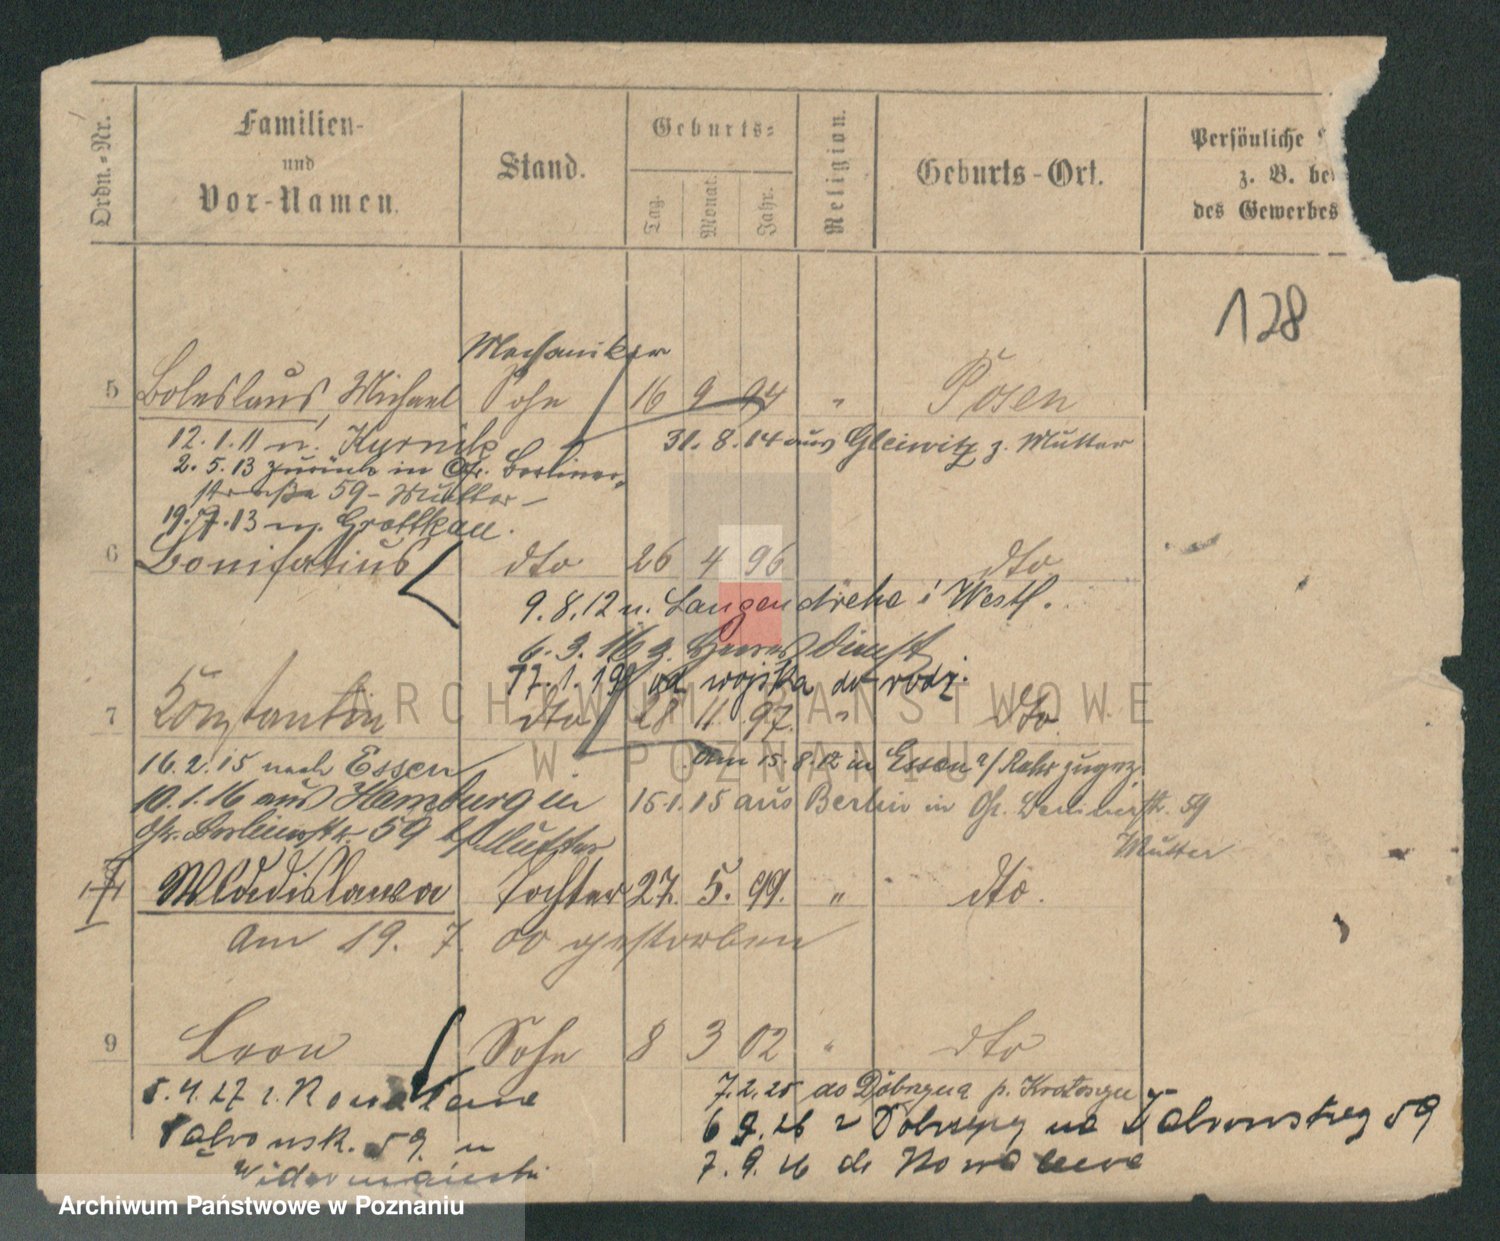 Ordn.-Nr.
Familien-
und
Vor-Namen.
Stand.
Geburts-
Tag.
Monat.
Jahr.
Religion.
Geburts-Ort.
Persönliche
z. B. be
des Gewerbes
128
Mechaniker
5 Boleslaus, Michael Sohn 16 9 94 " Posen
12. 1. 11 n. Kurnik 31. 8. 14 aus Gleiwitz z. Mutter
2. 5. 13 zurück in Gr. Berliner-
straße 59 - Mutter -
19. 7. 13 n. Grottkau.
6 Bonifatius dto 26 4 96 dto
9. 8. 12 n. Langendreha i Westf.
6. 3. 16 z. Heeresdienst
17. 1. 19 od wojska do rodz.
7 Konstantin dto 28 11 97. " dto.
16. 2. 15 nach Essen am 15. 8. 12 in Essen a/Ruhr zugez.
10. 1. 16 aus Hamburg in 15. 1. 15 aus Berlin in Gr. Berlinerstr. 59
Gr. Berlinerstr. 59 Mutter
Mutter
Wladislawa Tochter 27. 5. 99. " dto.
Am 19. 7. 00 gestorben
9 Leon Sohn 8 3 02 " dto
5. 4. 27 z. 7. 2. 25 do p. Krotoszyn
59. 6 9. 26 z na Dabrowskieg 59
7. 9. 26 do
ARCHIWUM PAŃSTWOWE
W POZNANIU
Archiwum Państwowe w Poznaniu